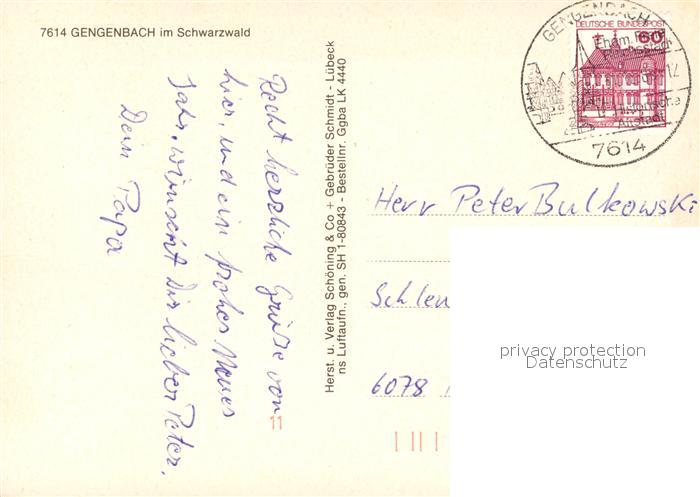 7614 GENGENBACH im Schwarzwald
Recht herzliche Grüße von
hier, und ein frohes Neues
Jahr, wünscht Dir lieber Peter,
Dein Papa
Herst. u. Verlag Schöning & Co + Gebrüder Schmidt - Lübeck
ns Luftaufn., gen. SH 1-80843 - Bestellnr. Ggba LK 4440
GENGENBACH
DEUTSCHE BUNDESPOST
60
Ehem. Freie
Reichsstadt
12
Historische
Altstadt
7614
Herr Peter Bulkowski
Schlen
6078
privacy protection
Datenschutz
11